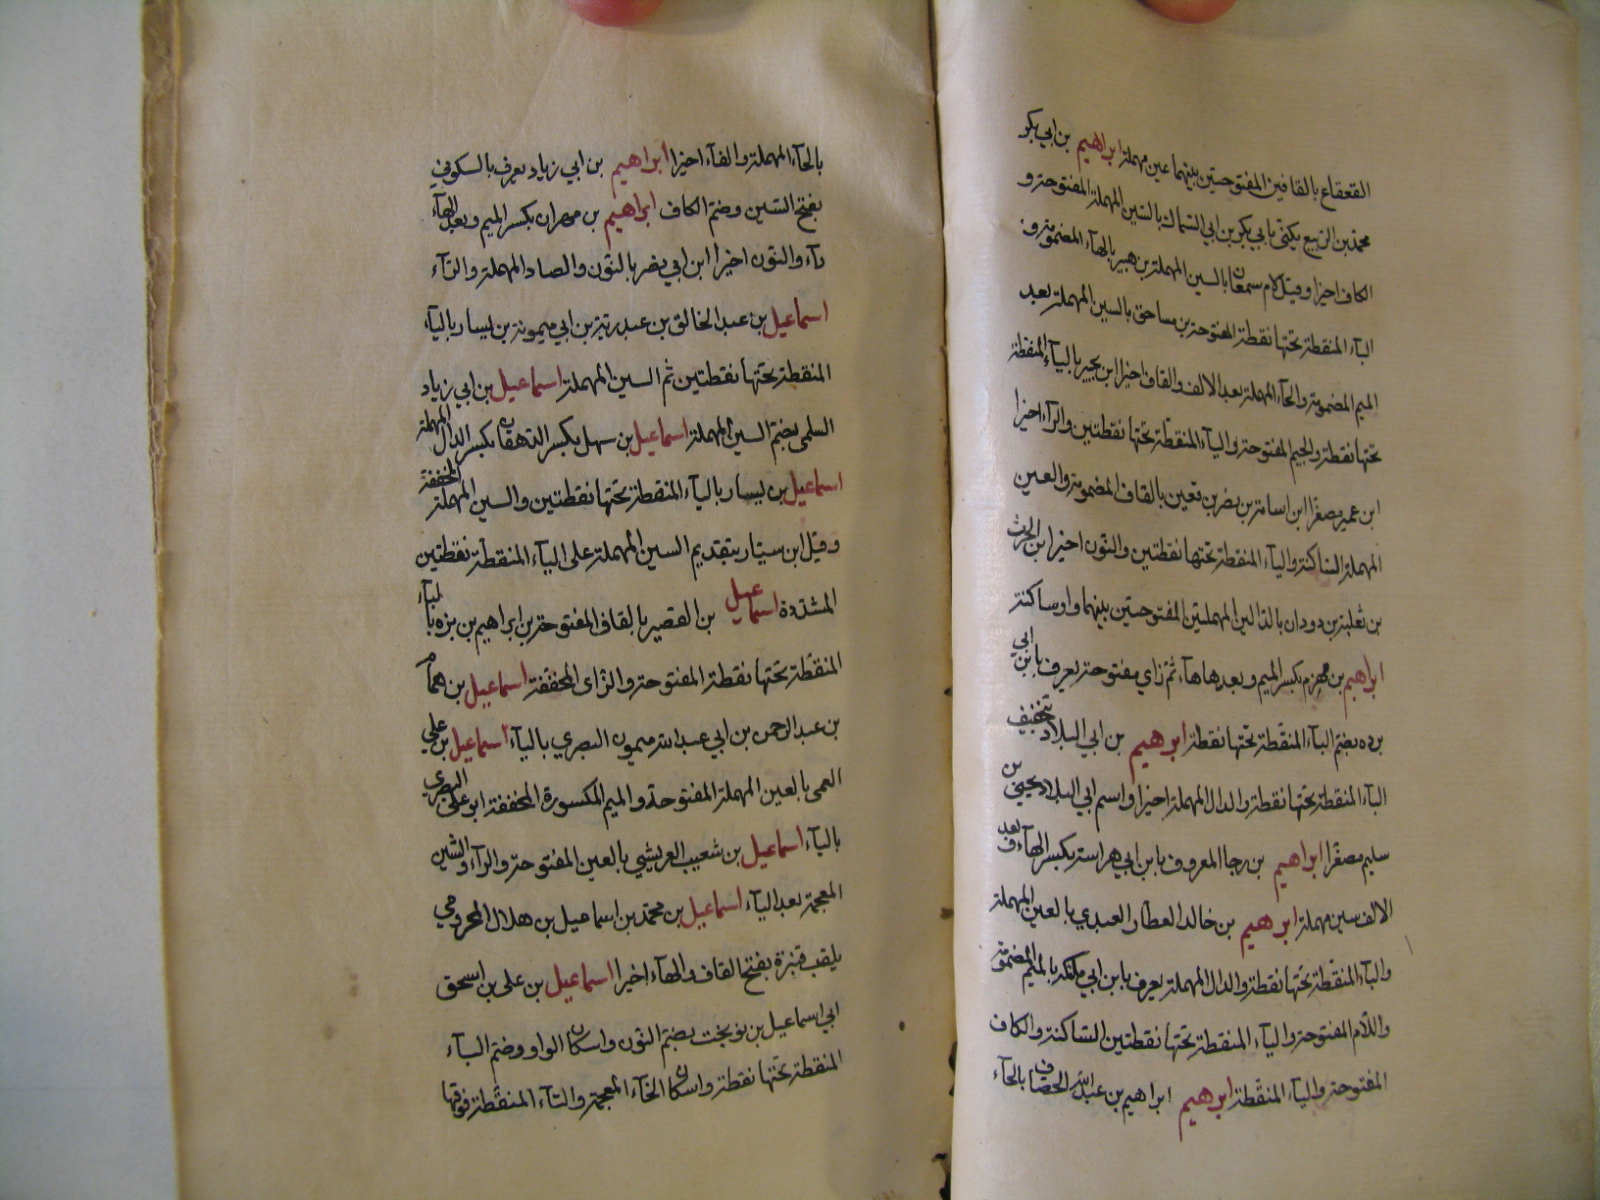 القعقاع بالقافين المفتوحتين بينهما عين مهملة ابراهيم بن ابي بكر
محمد بن الربيع يكنى بابي بكر بن ابي السماك بالسين المهملة المفتوحة و
الكاف اخيرا وقيل لام سمعان بالسين المهملة بن هبير بالهاء المضمومة و
الباء المنقطة تحتها نقطة المفتوحة بن مساحق بالسين المهملة بعد
الميم المضمومة والحاء المهملة بعد الالف والقاف اخيرا ابن بجير بالباء المنقطة
تحتها نقطة والجيم المفتوحة والياء المنقطة تحتها نقطتين والراء اخيرا
ابن عمير مصغرا ابن اسامة بن نصر بن قعين بالقاف المضمومة والعين
المهملة الساكنة والياء المنقطة تحتها نقطتين والنون اخيرا ابن الحرث
بن ثعلبة بن دودان بالدالين المهملتين المفتوحتين بينهما واو ساكنة
ابراهيم بن مهزم بكسر الميم وبعدها هاء ثم زاي مفتوحة يعرف بابن ابي
برده بضم الباء المنقطة تحتها نقطة ابرهيم بن ابي البلاد بتخفيف
الباء المنقطة تحتها نقطة والدال المهملة اخيرا واسم ابي البلاد يحيى بن
سليم مصغرا ابراهيم بن رجا المعروف بابن ابي هراسة بكسر الهاء و بعد
الالف سين مهملة ابرهيم بن خالد العطار العبدي بالعين المهملة
والباء المنقطة تحتها نقطة والدال المهملة يعرف بابن ابي مليكة بالميم المضمومة
واللام المفتوحة والياء المنقطة تحتها نقطتين الساكنة والكاف
المفتوحة والياء المنقطة ابرهيم ابراهيم بن عبد الله الخصاف بالخاء
بالحاء المهملة والفاء اخيرا ابراهيم بن ابي زياد يعرف بالسكوني
بفتح السين وضم الكاف ابراهيم بن مهران بكسر الميم وبعد الهاء
راء والنون اخيرا ابن ابي بصر بالنون والصاد المهملة والراء
اسماعيل بن عبد الخالق بن عبد ربه بن ابي ميمونة بن يسار بالياء
المنقطة تحتها نقطتين ثم السين المهملة اسماعيل بن ابي زياد
السلمي بضم السين المهملة اسماعيل بن سهل بكسر الدهقان بكسر الدال المهملة
اسماعيل بن يسار بالياء المنقطة تحتها نقطتين والسين المهملة المخففة
وقيل ابن سيار بتقديم السين المهملة على الياء المنقطة نقطتين
المشددة اسماعيل بن القصير بالقاف المفتوحة بن ابراهيم بن بزه بالباء
المنقطة تحتها نقطة المفتوحة والزاي المخففة اسماعيل بن همام
بن عبد الرحمن بن ابي عبد الله ميمون البصري بالباء اسماعيل بن علي
العمى بالعين المهملة المفتوحة والميم المكسورة المخففة ابو علي البصري
بالباء اسماعيل بن شعيب العريشي بالعين المفتوحة والراء والشين
المعجمة بعد الياء اسماعيل بن محمد بن اسماعيل بن هلال المخزومي
يلقب قنبرة بفتح القاف والهاء اخيرا اسماعيل بن علي بن اسحق
ابي اسماعيل بن نوبخت بضم النون واسكان الواو وضم الباء
المنقطة تحتها نقطة واسكان الخاء المعجمة والتاء المنقطة فوقها